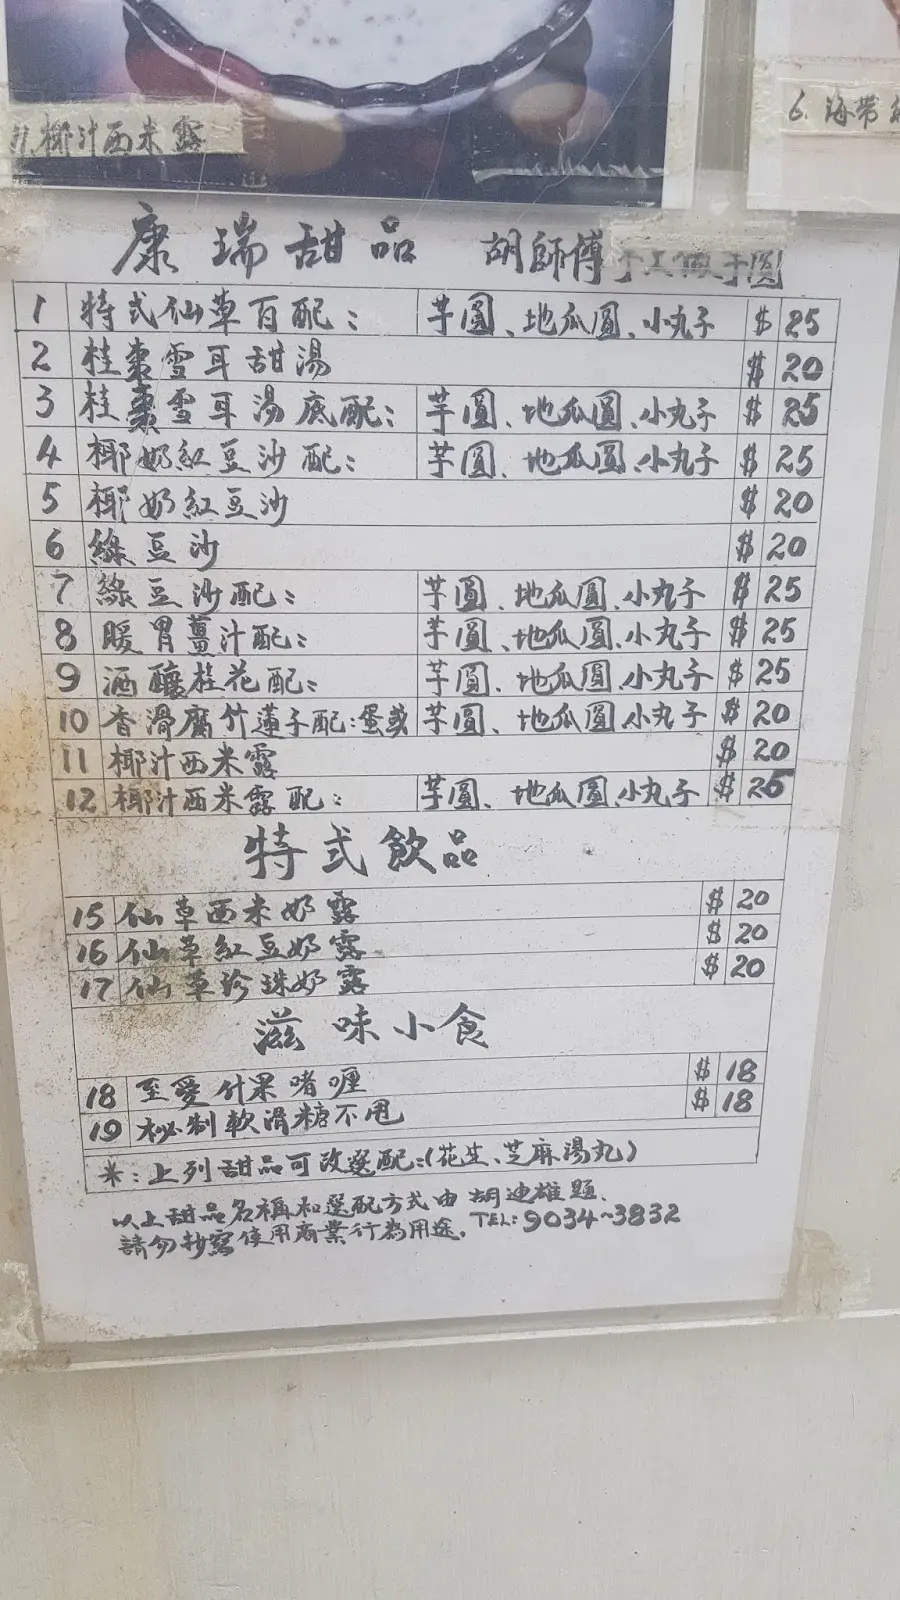 11.椰汁西米露
6.海帶
康瑞甜品 胡師傅
1 特式仙草百配： 芋圓、地瓜圓、小丸子 $ 25
2 桂棗雪耳甜湯 $ 20
3 桂棗雪耳湯底配： 芋圓、地瓜圓、小丸子 $ 25
4 椰奶紅豆沙配： 芋圓、地瓜圓、小丸子 $ 25
5 椰奶紅豆沙 $ 20
6 綠豆沙 $ 20
7 綠豆沙配： 芋圓、地瓜圓、小丸子 $ 25
8 暖胃薑汁配： 芋圓、地瓜圓、小丸子 $ 25
9 酒釀桂花配： 芋圓、地瓜圓、小丸子 $ 25
10 香滑腐竹蓮子配：蛋或 芋圓、地瓜圓、小丸子 $ 20
11 椰汁西米露 $ 20
12 椰汁西米露配： 芋圓、地瓜圓、小丸子 $ 25
特式飲品
15 仙草西米奶露 $ 20
16 仙草紅豆奶露 $ 20
17 仙草珍珠奶露 $ 20
滋味小食
18 至愛什果啫喱 $ 18
19 秘制軟滑糖不甩 $ 18
*：上列甜品可改選配：(花生、芝麻湯丸)
以上甜品名稱和選配方式由胡迪雄題、
請勿抄寫使用商業行為用途。TEL：9034~3832